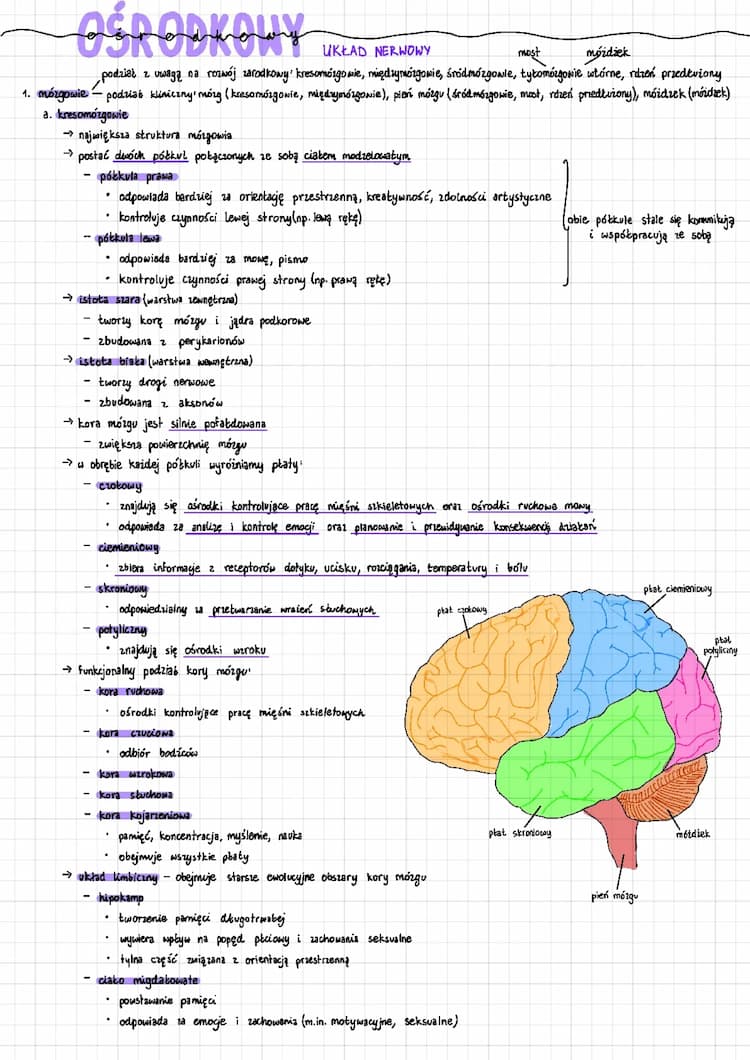 OŚRODKOWY
UKŁAD NERWOWY
most móżdżek
podział z uwagą na rozwój zarodkowy: kresomózgowie, międzymózgowie, śródmózgowie, tyłomózgowie wtórne, rdzeń przedłużony
1. mózgowie – podział kliniczny: mózg (kresomózgowie, międzymózgowie), pień mózgu (śródmózgowie, most, rdzeń przedłużony), móżdżek (móżdżek)
a. kresomózgowie
→ największa struktura mózgowia
→ postać dwóch półkul połączonych ze sobą ciałem modzelowatym
- półkula prawa
• odpowiada bardziej za orientację przestrzenną, kreatywność, zdolności artystyczne
• kontroluje czynności lewej strony (np. lewą rękę)
obie półkule stale się komunikują
i współpracują ze sobą
- półkula lewa
• odpowiada bardziej za mowę, pismo
• kontroluje czynności prawej strony (np. prawą rękę)
→ istota szara (warstwa zewnętrzna)
- tworzy korę mózgu i jądra podkorowe
- zbudowana z perykarionów
→ istota biała (warstwa wewnętrzna)
- tworzy drogi nerwowe
- zbudowana z aksonów
→ kora mózgu jest silnie pofałdowana
- zwiększa powierzchnię mózgu
→ w obrębie każdej półkuli wyróżniamy płaty:
- czołowy
• znajdują się ośrodki kontrolujące pracę mięśni szkieletowych oraz ośrodki ruchowe mowy
• odpowiada za analizę i kontrolę emocji oraz planowanie i przewidywanie konsekwencji działań
- ciemieniowy
• zbiera informacje z receptorów dotyku, ucisku, rozciągania, temperatury i bólu
- skroniowy
• odpowiedzialny za przetwarzanie wrażeń słuchowych
- potyliczny
• znajdują się ośrodki wzroku
→ funkcjonalny podział kory mózgu:
- kora ruchowa
• ośrodki kontrolujące pracę mięśni szkieletowych
- kora czuciowa
• odbiór bodźców
- kora wzrokowa
- kora słuchowa
- kora kojarzeniowa
• pamięć, koncentracja, myślenie, nauka
• obejmuje wszystkie płaty
→ układ limbiczny – obejmuje starsze ewolucyjne obszary kory mózgu
- hipokamp
• tworzenie pamięci długotrwałej
• wywiera wpływ na popęd płciowy i zachowania seksualne
• tylna część związana z orientacją przestrzenną
- ciało migdałowate
• powstawanie pamięci
• odpowiada za emocje i zachowania (m.in. motywacyjne, seksualne)
płat czołowy
płat ciemieniowy
płat
potyliczny
płat skroniowy
móżdżek
pień mózgu